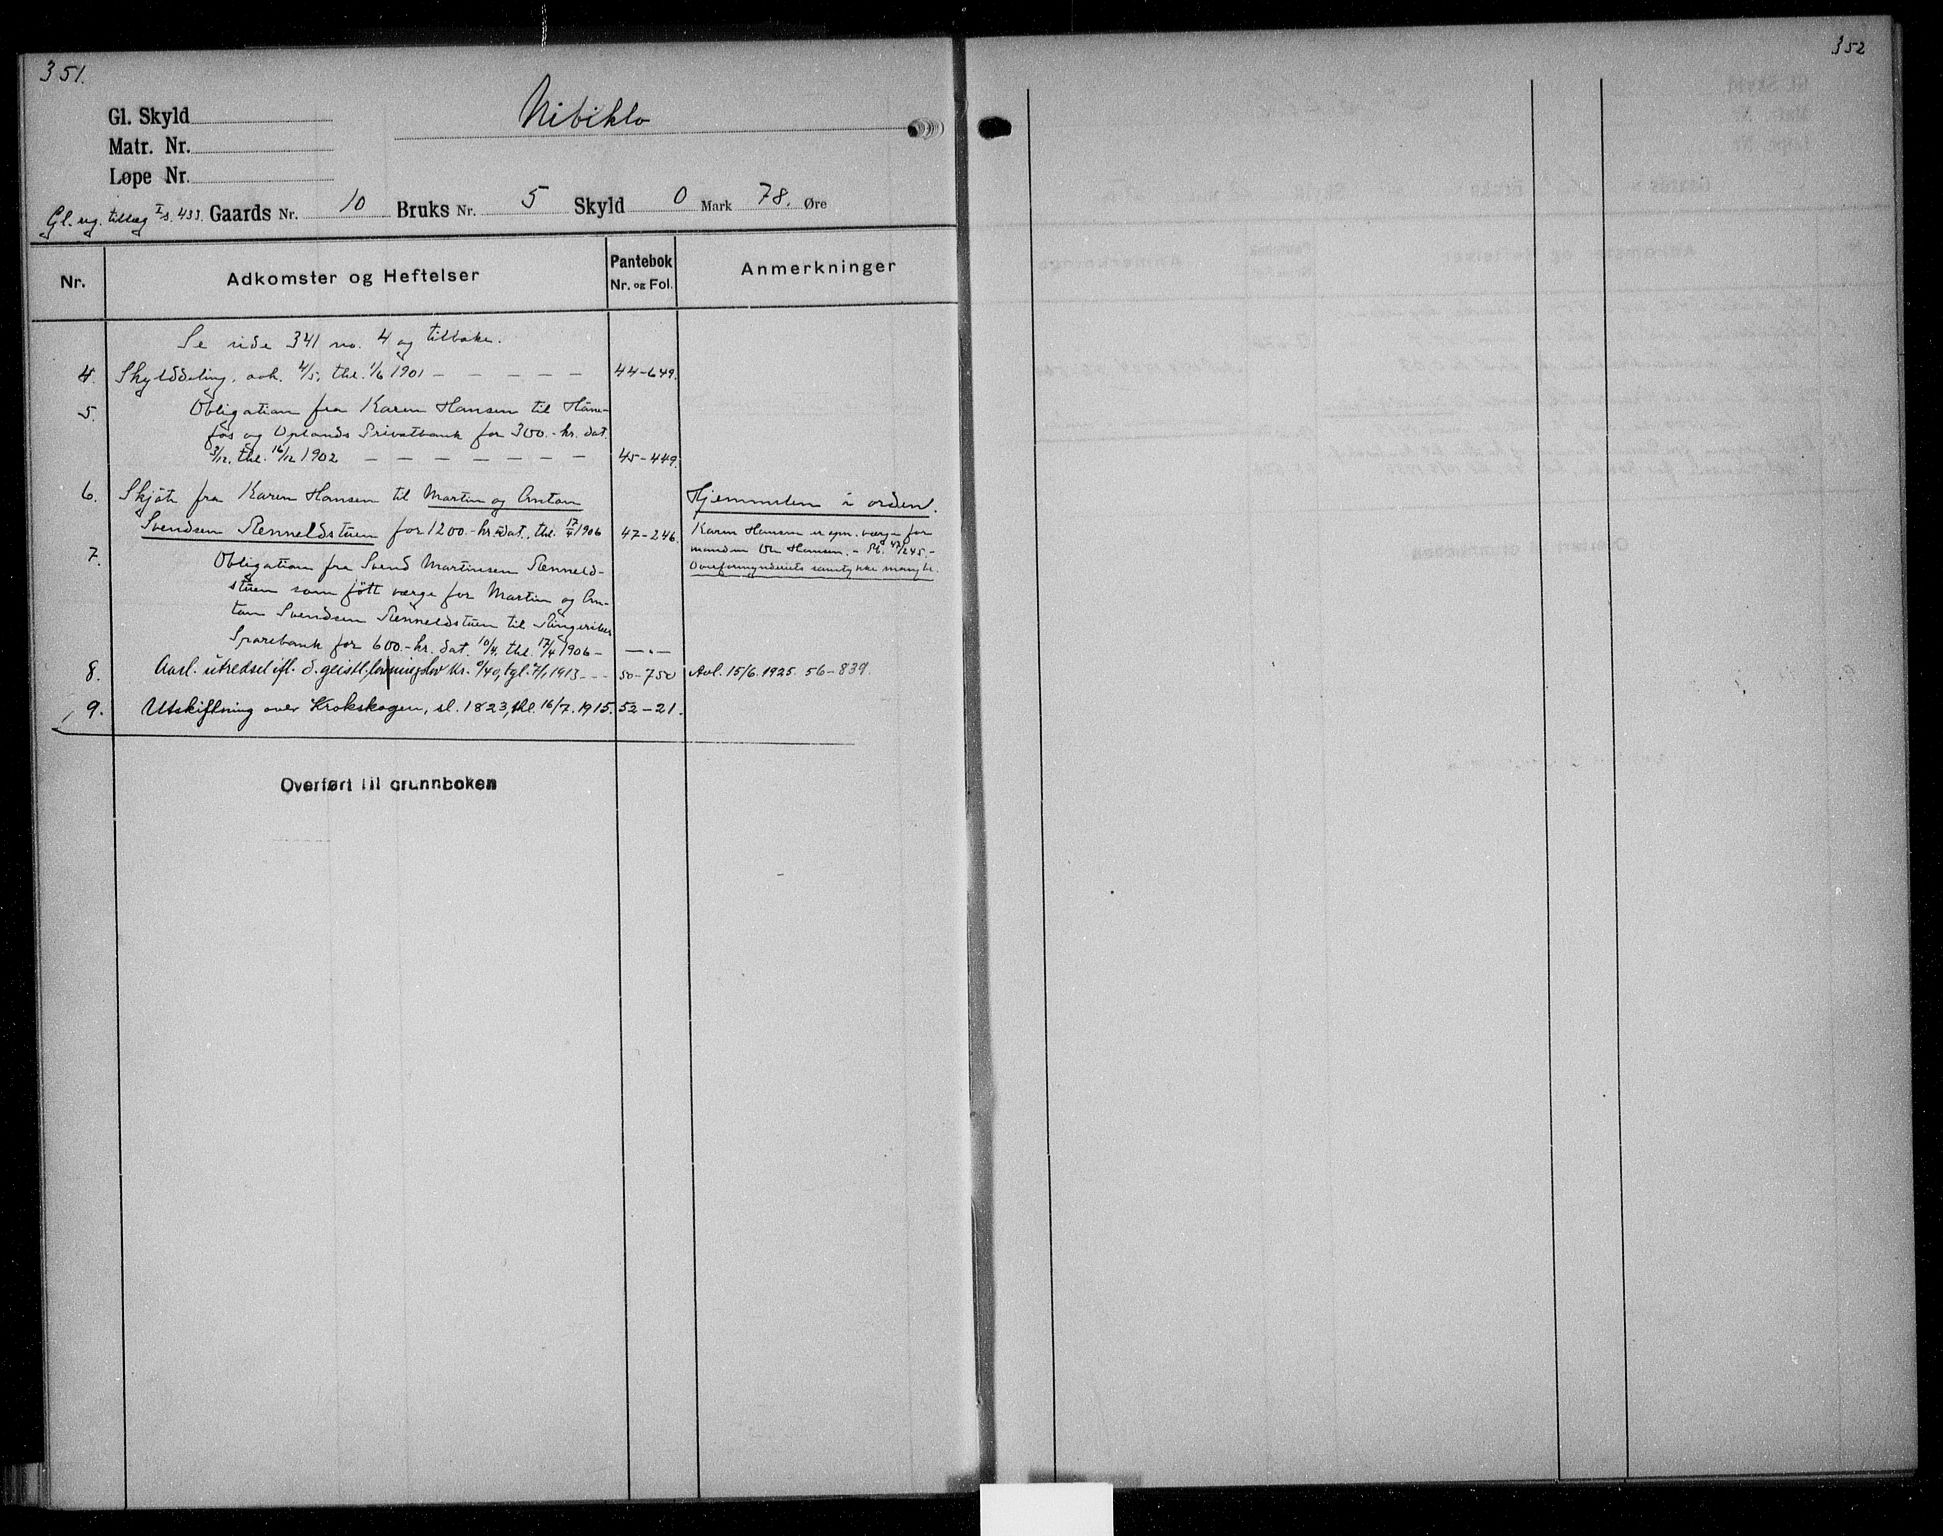 351.
352
Gl. Skyld
Nibiklo
Matr. Nr.
Løpe Nr.
Gl. reg. tillæg I s. 433. Gaards Nr. 10 Bruks Nr. 5 Skyld 0 Mark 78. Øre
Nr. Adkomster og Heftelser Pantebok Nr. og Fol. Anmerkninger
Se side 341 no. 4 og tilbake.
4. Skylddeling, avh. 4/5, thl. 1/6 1901 — — — — — 44-649.
5. Obligation fra Karen Hansen til Høne-
fos og Oplands Privatbank for 300.- kr. dat.
3/12. thl. 16/12 1902 — — — — — — 45-449.
6. Skjøte fra Karen Hansen til Martin og Anton
Svendsen Renneldstuen for 1200.- kr. dat., thl. 17/4 1906 47-246.
Hjemmelen i orden.
Karen Hansen er opn. værge for
manden Ole Hansen. - Pb. 47/245.-
Overformynderiets samtykke mangle.
7. Obligation fra Svend Martinsen Renneld-
stuen som født værge for Martin og An-
ton Svendsen Renneldstuen til Ringerikes
Sparebank for 600.- kr. dat. 10/4. thl. 17/4 1906 - —"—
8. Aarl. utredsel ifl. d. geistl. kr. 0/40, tgl. 7/1 1913 - - - 50-750 Avl. 15/6. 1925. 56-839.
9. Utskiftning over Krokskogen, sl. 1823, thl. 16/7. 1915. 52-21.
Overført til grunnboken